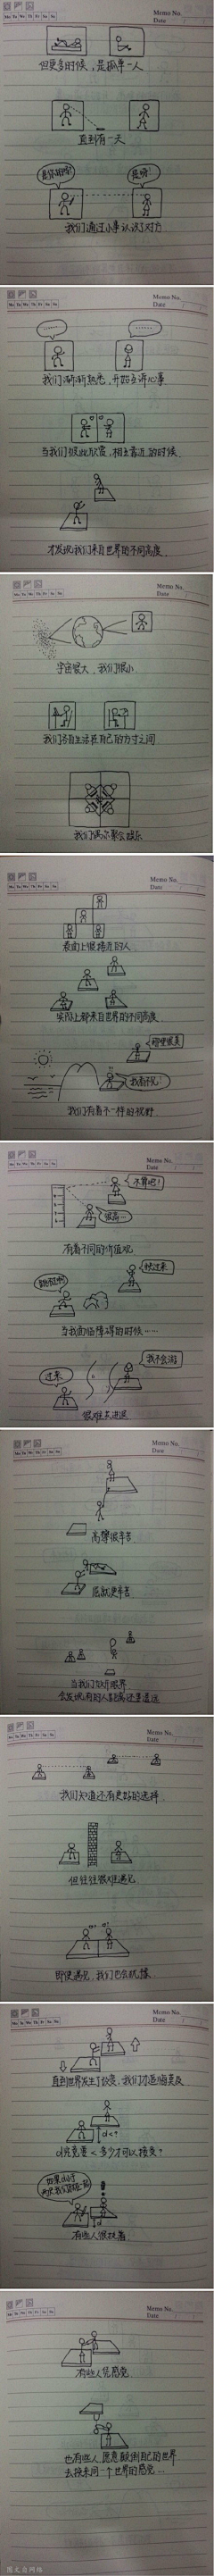 Memo No.
Mo Tu We Th Fr Sa Su
Date / /
但更多的时候，是孤单一人
直到有一天
是你的吗?
是呀!
我们通过小事认识了对方
Memo No.
Mo Tu We Th Fr Sa Su
Date / /
……
……
我们渐渐熟悉，开始互诉心事
当我们彼此欣赏，相互靠近的时候
才发现我们来自世界的不同高度
Memo No.
Mo Tu We Th Fr Sa Su
Date / /
宇宙很大，我们很小
我们各自生活在自己的方寸之间
我们偶尔聚会娱乐
Memo No.
Mo Tu We Th Fr Sa Su
Date / /
表面上很接近的人
实际上都来自世界的不同高度
我看不见!
我们有着不一样的视野
Memo No.
Mo Tu We Th Fr Sa Su
Date / /
不算吧!
很高…
有着不同的价值观
快过来
当我面临障碍的时候……
我不会游
过来
很难共进退
Memo No.
Mo Tu We Th Fr Sa Su
Date / /
高攀很辛苦
屈就更辛苦
当我们放开眼界
会发现有的人距离还更遥远
Memo No.
Mo Tu We Th Fr Sa Su
Date / /
我们知道还有更好的选择
但往往很难遇见
即使遇见，我们也会犹豫
Memo No.
Mo Tu We Th Fr Sa Su
Date / /
直到世界发生了改变，我们才追悔莫及
d<?
d究竟要<多少才可以接受?
d
有些人很执着
Memo No.
Mo Tu We Th Fr Sa Su
Date / /
有些人凭感觉
也有些人愿意颠倒自己的世界
去换来同一个世界的感觉…
图文自网络